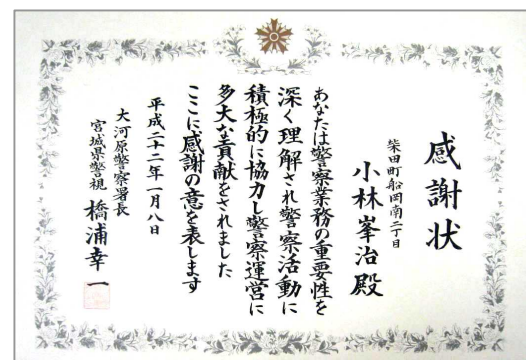 感謝状
柴田町船岡南二丁目
小林峯治殿
あなたは警察業務の重要性を
深く理解され警察活動に
積極的に協力し警察運営に
多大な貢献をされました
ここに感謝の意を表します
平成二十二年一月八日
大河原警察署長
宮城県警視 橋浦幸一